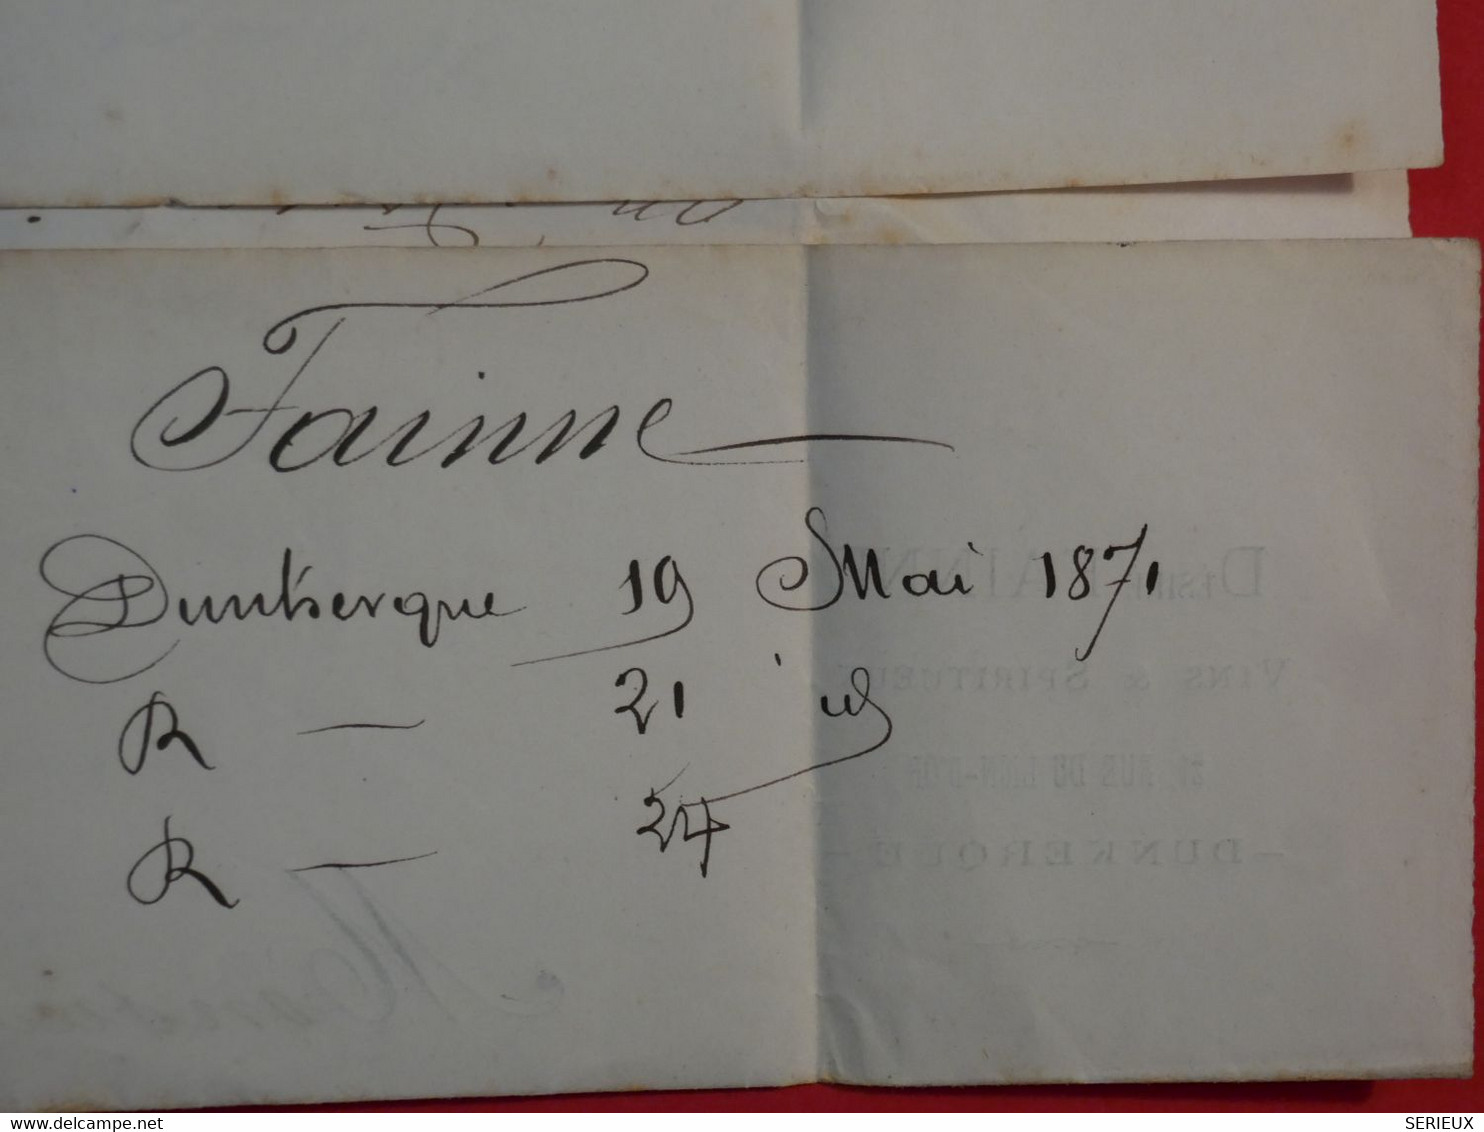 Fainne
Dunkerque 19 Mai 1871
R — 21
R — 24
VINS & SPIRITUEUX
RUE DU LION-D'OR
- DUNKERQUE -
delcampe.net
SERIEUX